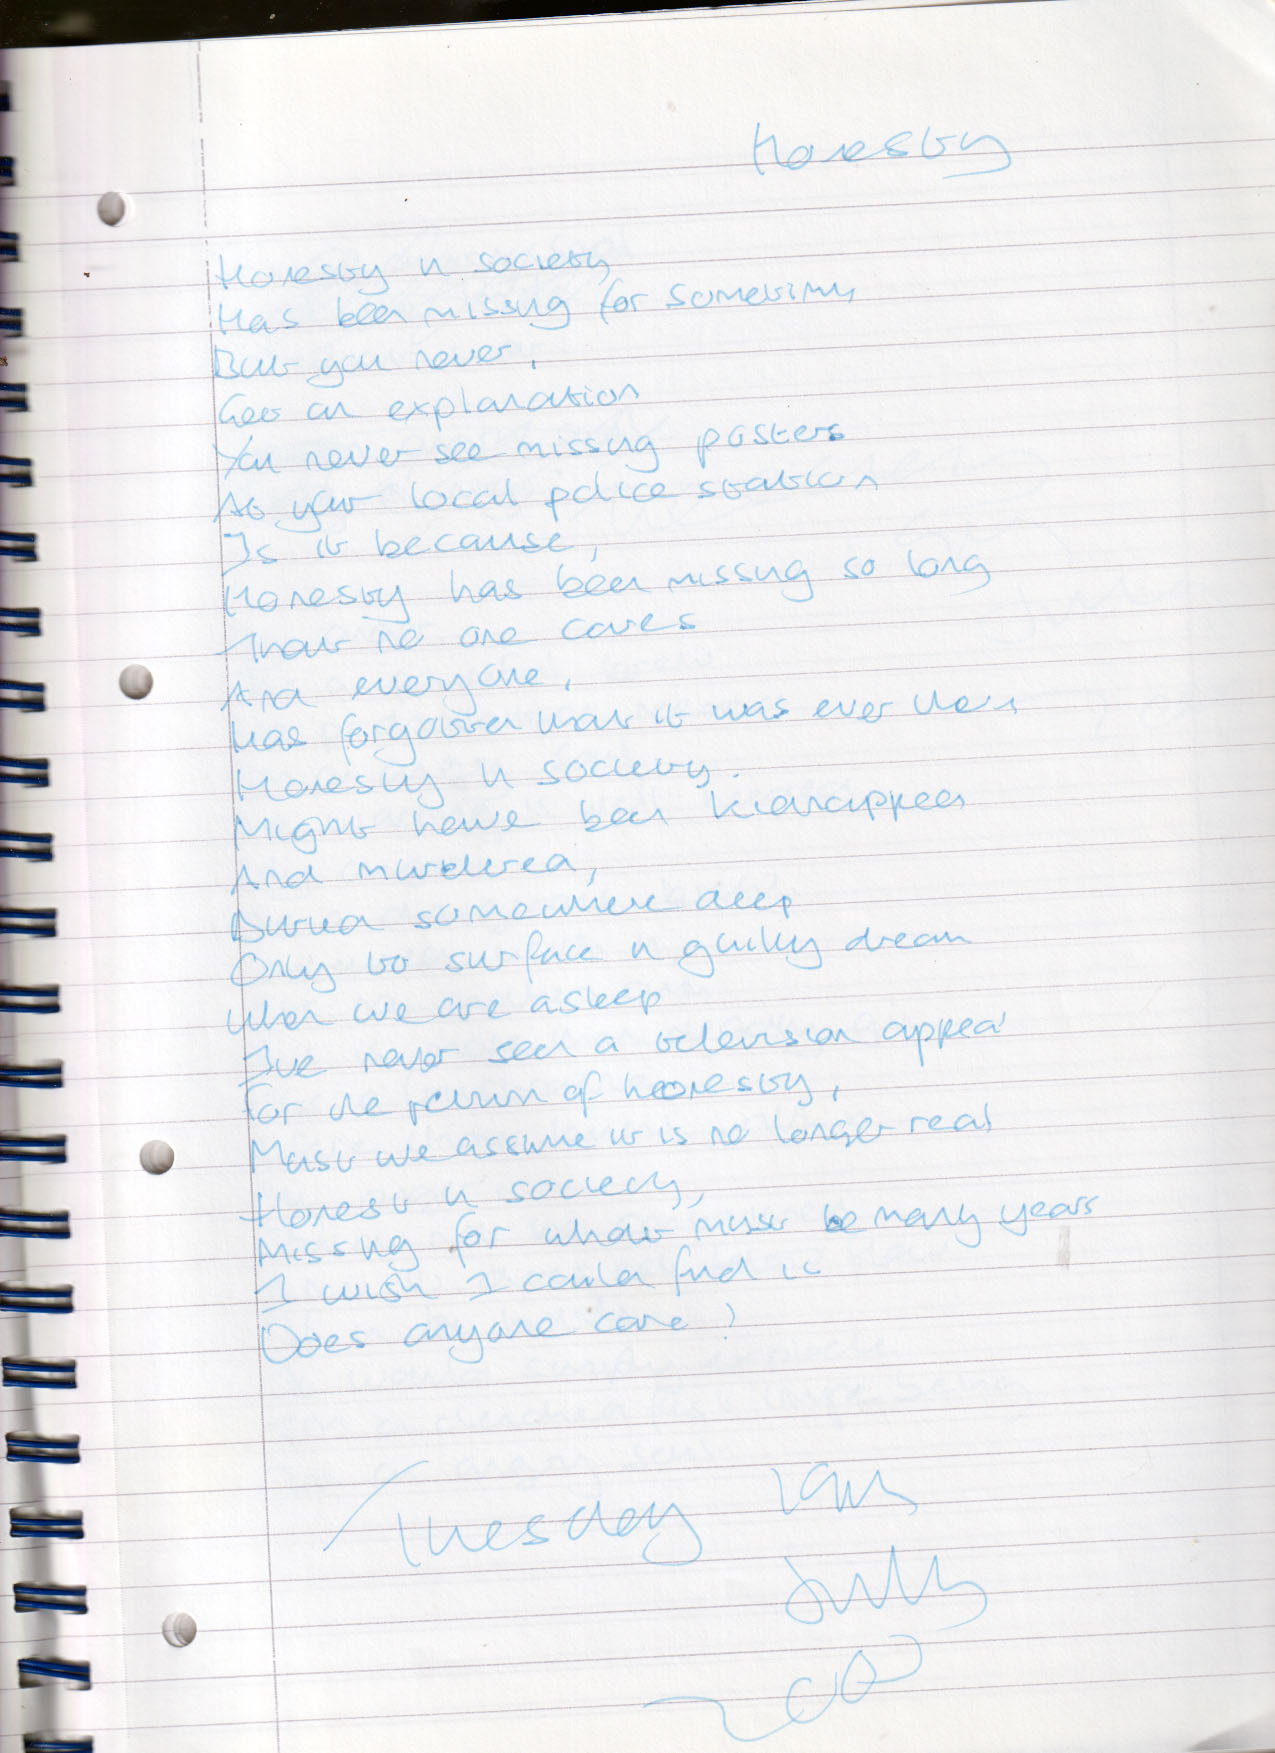 Honesty
Honesty in society
Has been missing for sometime
But you never,
Get an explanation
You never see missing posters
At your local police station
Is it because,
Honesty has been missing so long
That no one cares
And everyone,
Has forgotten that it was ever there
Honesty in society.
Might have been kidnapped
And murdered,
Buried somewhere deep
Only to surface in guilty dream
When we are asleep
Ive never seen a television appeal
For the return of honesty,
Must we assume it is no longer real
Honesty in society,
Missing for what must be many years
I wish I could find it
Does anyone care?
Tuesday
July